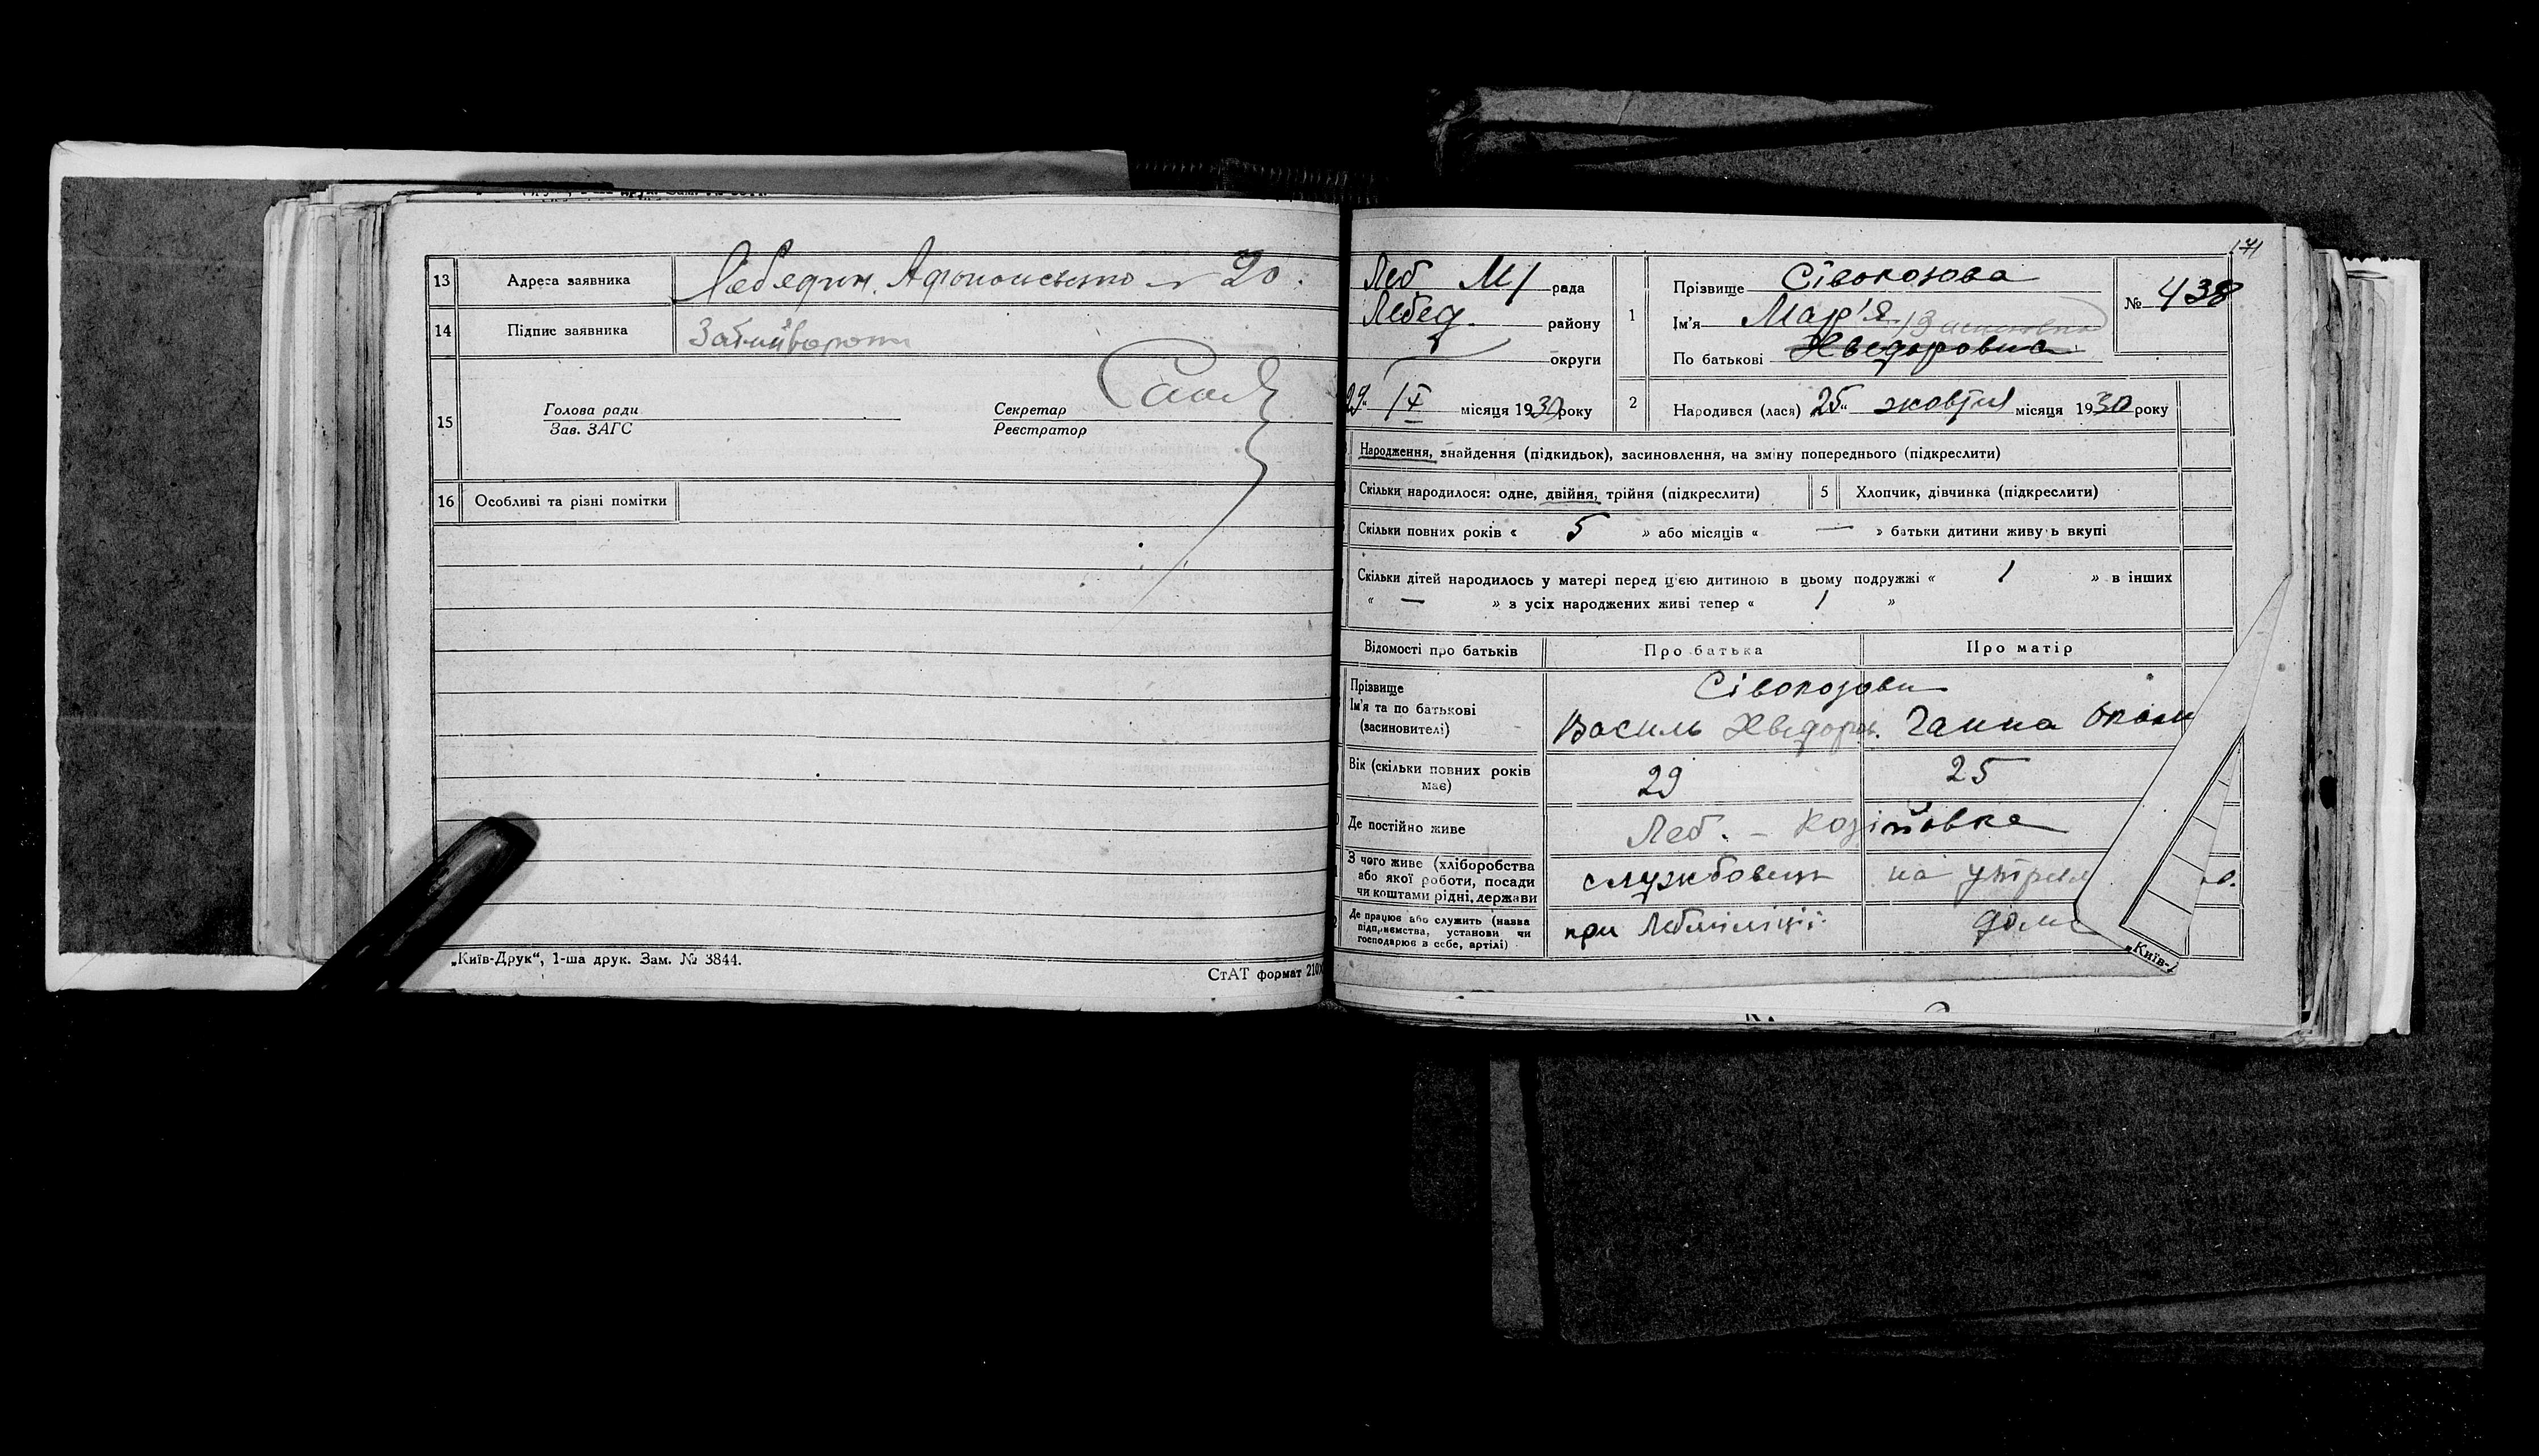 13 Адреса заявника Лебедин. 20.
14 Підпис заявника
15 Голова ради
Зав. ЗАГС
Секретар
Реєстратор
16 Особливі та різні помітки
„Київ-Друк“, 1-ша друк. Зам. № 3844.
СтАТ формат 210х
171
Леб. М/ рада
Лебед. району
округи
29“ ІХ місяця 1930 року
1 Прізвище Сівокозова
Ім'я Мар'я
По батькові Хведоровна
№ 438
2 Народився (лася) 25“ жовтня місяця 1930 року
Народження, знайдення (підкидьок), засиновлення, на зміну попереднього (підкреслити)
Скільки народилося: одне, двійня, трійня (підкреслити) 5 Хлопчик, дівчинка (підкреслити)
Скільки повних років « 5 » або місяців « — » батьки дитини живу ь вкупі
Скільки дітей народилось у матері перед цією дитиною в цьому подружжі « 1 » в інших
« — » з усіх народжених живі тепер « 1 »
Відомості про батьків Про батька Про матір
Прізвище Сівокозови
Ім'я та по батькові
(засиновителі) Василь Хведоров. Ганна
Вік (скільки повних років
має) 29 25
Де постійно живе Леб. – Козіївка
З чого живе (хліборобства
або якої роботи, посади
чи коштами рідні, держави службовець на утрим
Де працює або служить (назва
підприємства, установи чи
господарює в себе, артілі) при Лебміліції дома
„Київ-